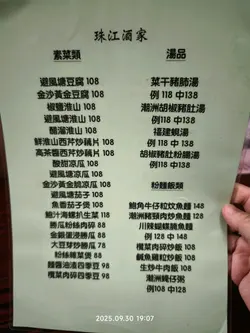 珠江酒家
素菜類
避風塘豆腐 108
金沙黃金豆腐 108
椒鹽淮山 108
避風塘淮山 108
醋溜淮山 108
鮮淮山西芹炒藕片 108
高茶醬西芹炒藕片 108
酸甜涼瓜 108
避風塘涼瓜 108
金沙黃金鬼涼瓜 108
避風塘茄子 108
魚香茄子煲 108
鮑汁海螺扒生菜 118
勝瓜粉絲肉碎 108
金銀蛋浸勝瓜 108
大豆芽炒勝瓜 108
粉絲雜菜煲 108
辣醬油渣四季豆 98
欖菜肉碎四季豆 98
湯品
菜干豬肺湯
例 118 中138
潮洲胡椒豬肚湯
例 118 中138
福建蜆湯
例 118 中 138
胡椒豬肚粉腸湯
例 118 中138
粉麵飯類
鮑角牛仔粒炆魚麵 148
潮洲豬頸肉炒魚麵 128
川辣蝴蝶腩魚麵
例 128 中 148
欖菜肉碎炒飯 108
鹹魚雞粒炒飯 108
生炒牛肉飯 108
潮洲蠔仔粥
例108中128
2025.09.30 19:07